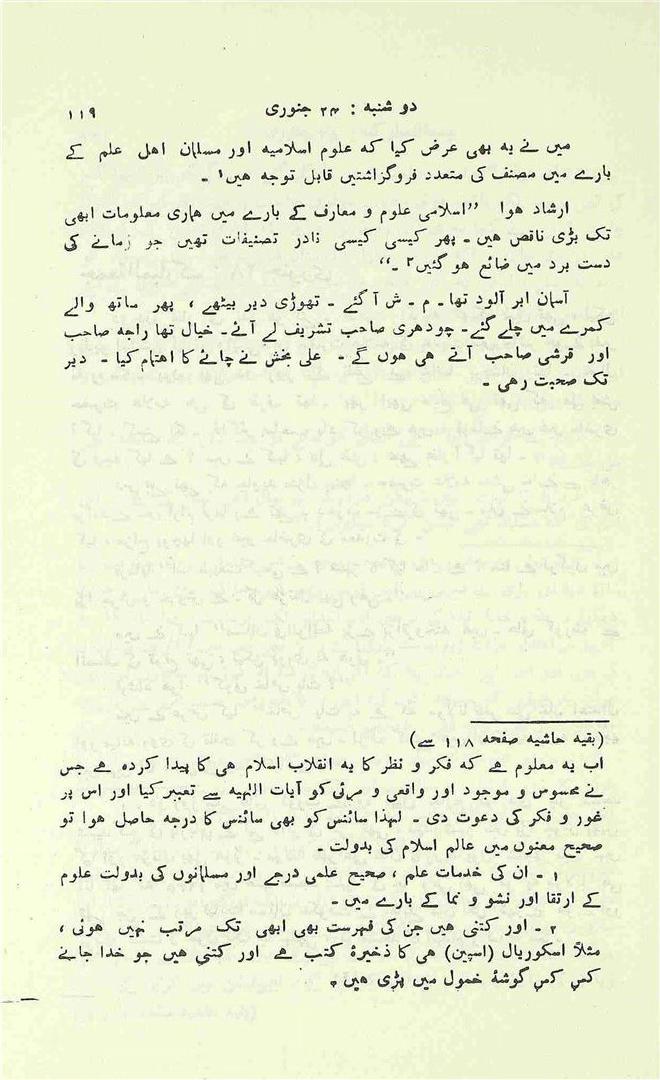 دو شنبه : ۲۴ جنوری ۱۱۹
میں نے یہ بھی عرض کیا کہ علوم اسلامیہ اور مسلمان اهل علم کے
بارے میں مصنف کی متعدد فروگزاشتیں قابل توجه هیں۱ ۔
ارشاد هوا ”اسلامی علوم و معارف کے بارے میں هماری معلومات ابھی
تک بڑی ناقص هیں ۔ پھر کیسی کیسی نادر تصنیفات تھیں جو زمانے کی
دست برد میں ضائع هو گئیں۲ ۔“
آسمان ابر آلود تھا ۔ م ۔ ش آ گئے ۔ تھوڑی دیر بیٹھے ، پھر ساتھ والے
کمرے میں چلے گئے ۔ چودھری صاحب تشریف لے آئے ۔ خیال تھا راجه صاحب
اور قرشی صاحب آتے هی هوں گے ۔ علی بخش نے چائے کا اهتمام کیا ۔ دیر
تک صحبت رهی ۔
(بقیه حاشیه صفحه ۱۱۸ سے)
اب یه معلوم هے که فکر و نظر کا یه انقلاب اسلام هی کا پیدا کرده هے جس
نے محسوس و موجود اور واقعی و مرئی کو آیات الٰہیه سے تعبیر کیا اور اس پر
غور و فکر کی دعوت دی ۔ لہذا سائنس کو بھی سائنس کا درجه حاصل هوا تو
صحیح معنوں میں عالم اسلام کی بدولت ۔
۱ ۔ ان کی خدمات علم ، صحیح علمی درجے اور مسلمانوں کی بدولت علوم
کے ارتقا اور نشو و نما کے بارے میں ۔
۲ ۔ اور کتنی هیں جن کی فہرست بھی ابھی تک مرتب نہیں هوئی ،
مثلاً اسکوریال (اسپین) هی کا ذخیرۂ کتب هے اور کتنی هیں جو خدا جانے
کس کس گوشۂ خمول میں پڑی هیں ۔